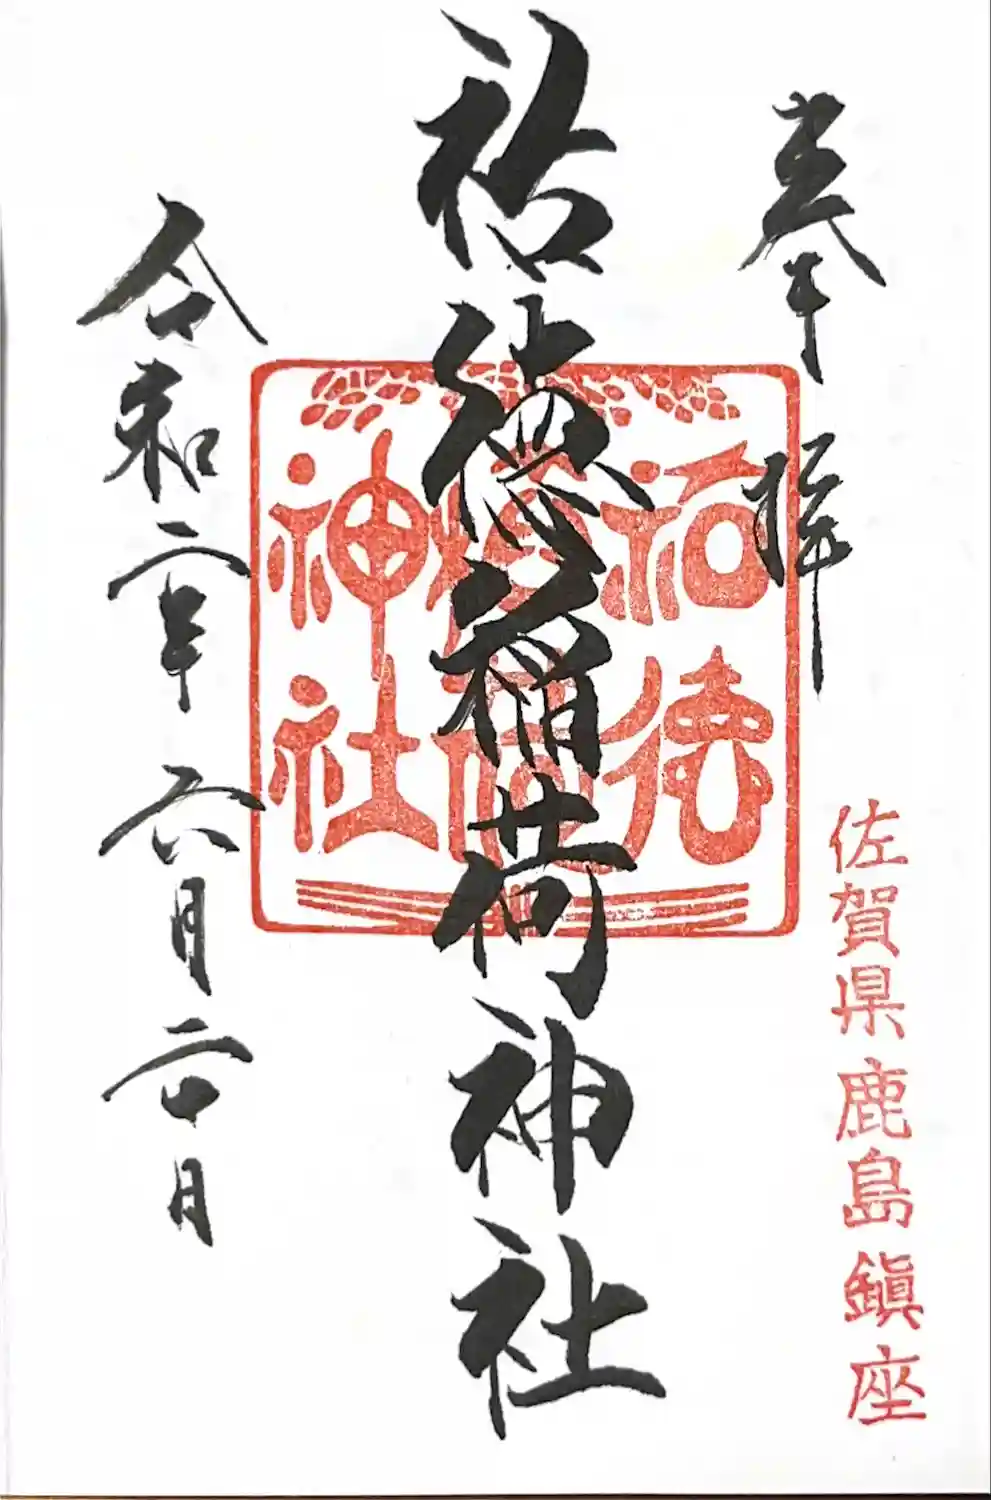 奉拝
佐賀県鹿島鎭座
祐徳稲荷神社
祐徳
稲荷
神社
令和二年六月二〇日